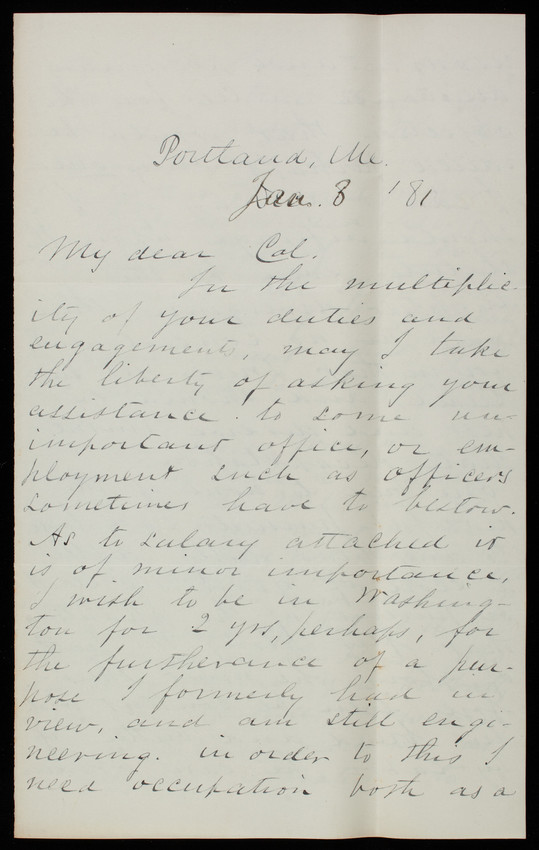 Portland, Me.
Jan. 8 '81
My dear Col.
In the multiplic-
ity of your duties and
engagements, may I take
the liberty of asking your
assistance to some un-
important office, or em-
ployment such as officers
sometimes have to bestow.
As to salary attached it
is of minor importance,
I wish to be in Washing-
ton for 2 yrs, perhaps, for
the furtherance of a pur-
pose I formerly had in
view, and am still engi-
neering. in order to this I
need occupation both as a